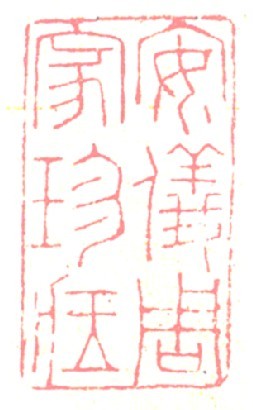 安儀周
家珍藏